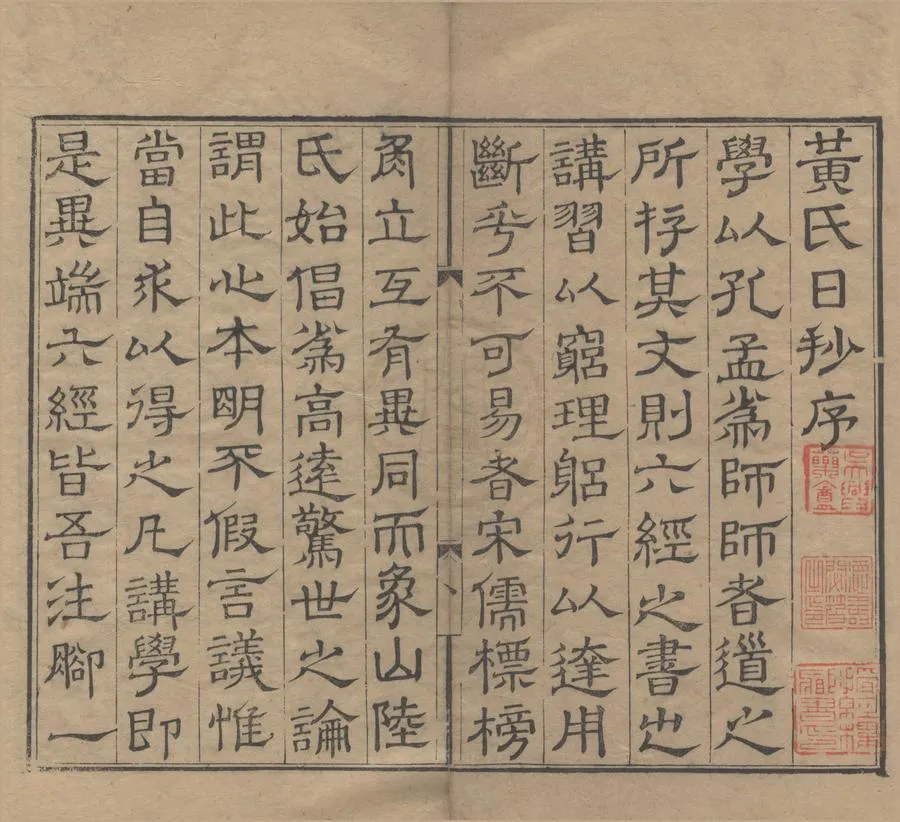 黃氏日抄序
學以孔孟爲師師者道之
所存其文則六經之書也
講習以窮理躬行以達用
斷乎不可易者宋儒標榜
角立互有異同而象山陸
氏始倡爲高遠驚世之論
謂此心本明不假言議惟
當自求以得之凡講學即
是異端六經皆吾注腳一